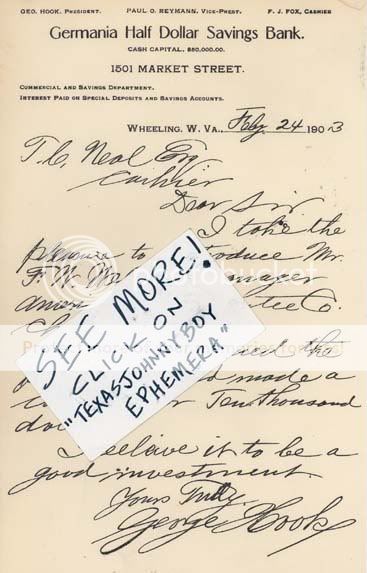 GEO. HOOK, PRESIDENT. PAUL O. REYMANN, VICE-PREST. F. J. FOX, CASHIER
Germania Half Dollar Savings Bank.
CASH CAPITAL, $80,000.00.
1501 MARKET STREET.
COMMERCIAL AND SAVINGS DEPARTMENT.
INTEREST PAID ON SPECIAL DEPOSITS AND SAVINGS ACCOUNTS.
WHEELING, W. VA., Feby 24 1903
T. C. Neal Esq
Cashier
Dear Sir
I take the
pleasure to Mr.
F. W.
Co.
the
made a
Ten thousand
I beleave it to be a
good investment.
Yours Truly
George Hook
SEE MORE!
CLICK ON
"TEXASJOHNNYBOY
EPHEMERA"
photobucket